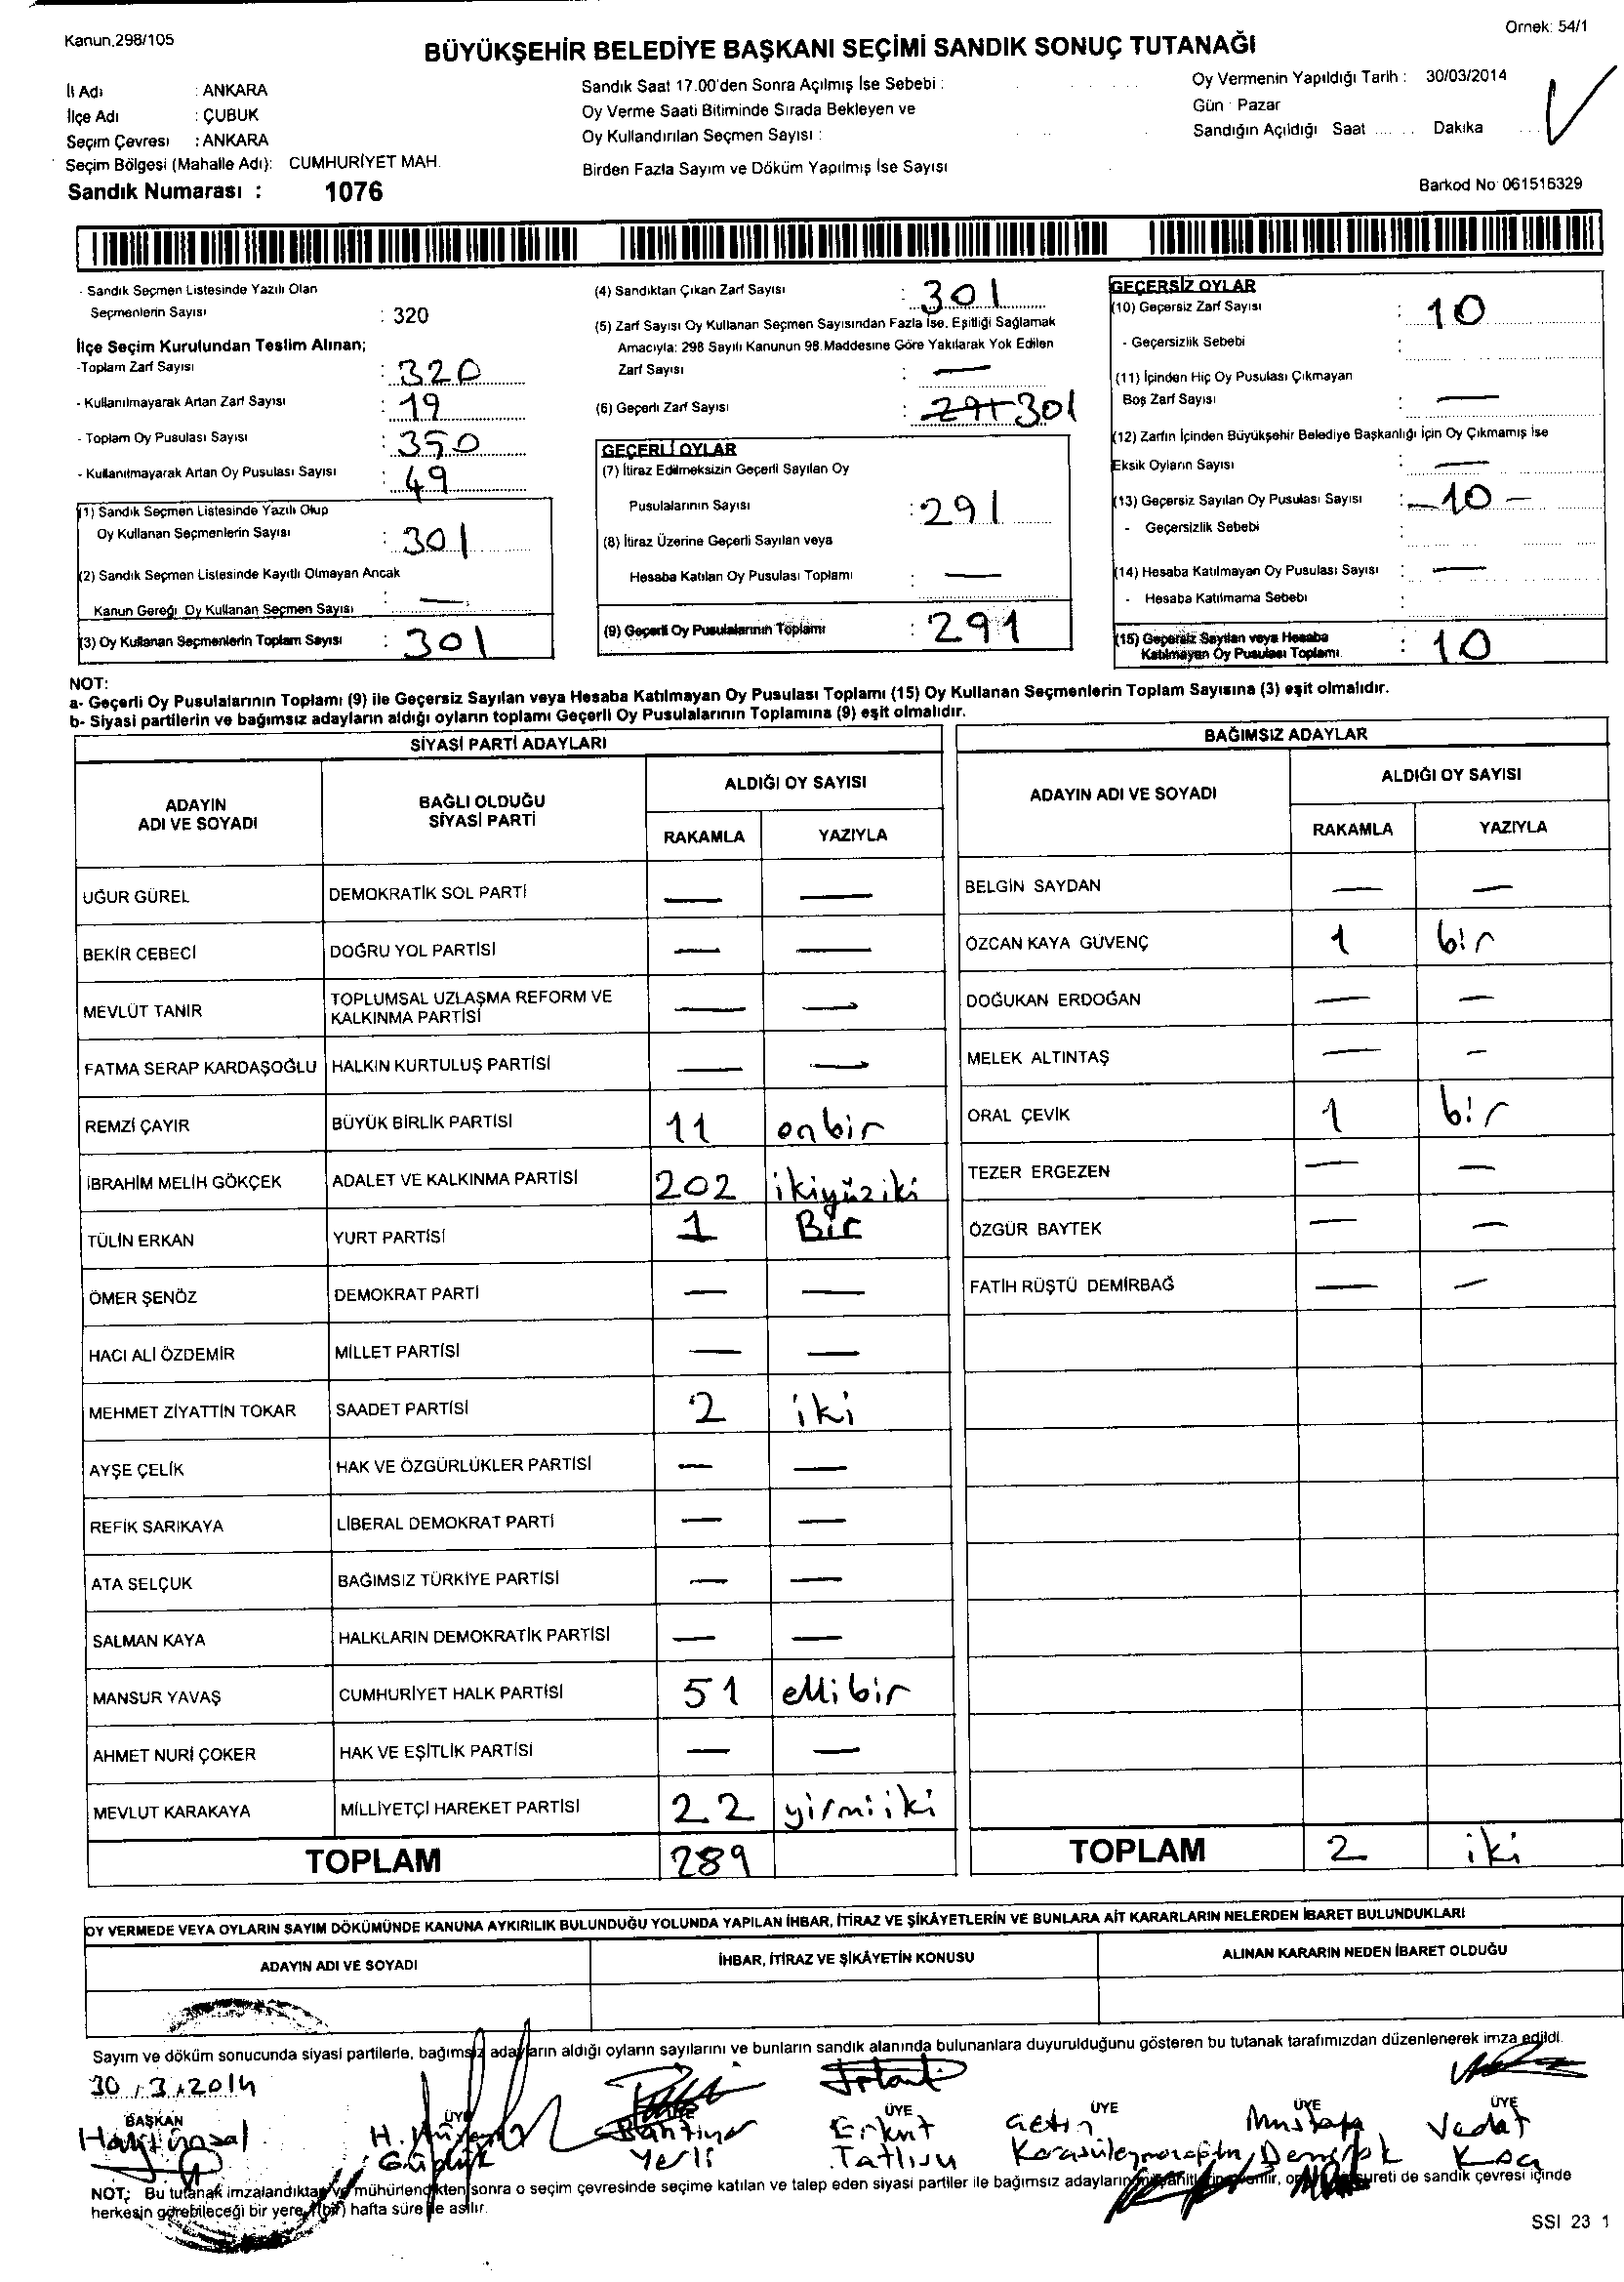 Kanun.298/105
Örnek: 54/1
BÜYÜKŞEHİR BELEDİYE BAŞKANI SEÇİMİ SANDIK SONUÇ TUTANAĞI
İl Adı : ANKARA
İlçe Adı : ÇUBUK
Seçim Çevresi : ANKARA
Seçim Bölgesi (Mahalle Adı): CUMHURİYET MAH.
Sandık Numarası : 1076
Sandık Saat 17.00'den Sonra Açılmış İse Sebebi :
Oy Verme Saati Bitiminde Sırada Bekleyen ve
Oy Kullandırılan Seçmen Sayısı :
Birden Fazla Sayım ve Döküm Yapılmış İse Sayısı
Oy Vermenin Yapıldığı Tarih : 30/03/2014
Gün : Pazar
Sandığın Açıldığı Saat ..... Dakika
Barkod No: 061516329
- Sandık Seçmen Listesinde Yazılı Olan
Seçmenlerin Sayısı : 320
İlçe Seçim Kurulundan Teslim Alınan;
-Toplam Zarf Sayısı : 320
- Kullanılmayarak Artan Zarf Sayısı : 19
- Toplam Oy Pusulası Sayısı : 350
- Kullanılmayarak Artan Oy Pusulası Sayısı : 49
(1) Sandık Seçmen Listesinde Yazılı Olup
Oy Kullanan Seçmenlerin Sayısı : 301
(2) Sandık Seçmen Listesinde Kayıtlı Olmayan Ancak
Kanun Gereği Oy Kullanan Seçmen Sayısı : —
(3) Oy Kullanan Seçmenlerin Toplam Sayısı : 301
(4) Sandıktan Çıkan Zarf Sayısı : 301
(5) Zarf Sayısı Oy Kullanan Seçmen Sayısından Fazla İse, Eşitliği Sağlamak
Amacıyla: 298 Sayılı Kanunun 98.Maddesine Göre Yakılarak Yok Edilen
Zarf Sayısı : —
(6) Geçerli Zarf Sayısı : 291 301
GEÇERLİ OYLAR
(7) İtiraz Edilmeksizin Geçerli Sayılan Oy
Pusulalarının Sayısı : 291
(8) İtiraz Üzerine Geçerli Sayılan veya
Hesaba Katılan Oy Pusulası Toplamı : —
(9) Geçerli Oy Pusulalarının Toplamı : 291
GEÇERSİZ OYLAR
(10) Geçersiz Zarf Sayısı : 10
- Geçersizlik Sebebi :
(11) İçinden Hiç Oy Pusulası Çıkmayan
Boş Zarf Sayısı : —
(12) Zarfın İçinden Büyükşehir Belediye Başkanlığı İçin Oy Çıkmamış İse
Eksik Oyların Sayısı : —
(13) Geçersiz Sayılan Oy Pusulası Sayısı : —10—
- Geçersizlik Sebebi :
(14) Hesaba Katılmayan Oy Pusulası Sayısı : —
- Hesaba Katılmama Sebebi :
(15) Geçersiz Sayılan veya Hesaba
Katılmayan Oy Pusulası Toplamı : 10
NOT:
a- Geçerli Oy Pusulalarının Toplamı (9) ile Geçersiz Sayılan veya Hesaba Katılmayan Oy Pusulası Toplamı (15) Oy Kullanan Seçmenlerin Toplam Sayısına (3) eşit olmalıdır.
b- Siyasi partilerin ve bağımsız adayların aldığı oyların toplamı Geçerli Oy Pusulalarının Toplamına (9) eşit olmalıdır.
SİYASİ PARTİ ADAYLARI
ADAYIN ADI VE SOYADI BAĞLI OLDUĞU SİYASİ PARTİ ALDIĞI OY SAYISI
RAKAMLA YAZIYLA
UĞUR GÜREL DEMOKRATİK SOL PARTİ — —
BEKİR CEBECİ DOĞRU YOL PARTİSİ — —
MEVLÜT TANIR TOPLUMSAL UZLAŞMA REFORM VE KALKINMA PARTİSİ — —
FATMA SERAP KARDAŞOĞLU HALKIN KURTULUŞ PARTİSİ — —
REMZİ ÇAYIR BÜYÜK BİRLİK PARTİSİ 11 onbir
İBRAHİM MELİH GÖKÇEK ADALET VE KALKINMA PARTİSİ 202 ikiyüziki
TÜLİN ERKAN YURT PARTİSİ 1 Bir
ÖMER ŞENÖZ DEMOKRAT PARTİ — —
HACI ALİ ÖZDEMİR MİLLET PARTİSİ — —
MEHMET ZİYATTİN TOKAR SAADET PARTİSİ 2 iki
AYŞE ÇELİK HAK VE ÖZGÜRLÜKLER PARTİSİ — —
REFİK SARIKAYA LİBERAL DEMOKRAT PARTİ — —
ATA SELÇUK BAĞIMSIZ TÜRKİYE PARTİSİ — —
SALMAN KAYA HALKLARIN DEMOKRATİK PARTİSİ — —
MANSUR YAVAŞ CUMHURİYET HALK PARTİSİ 51 ellibir
AHMET NURİ ÇOKER HAK VE EŞİTLİK PARTİSİ — —
MEVLUT KARAKAYA MİLLİYETÇİ HAREKET PARTİSİ 22 yirmiiki
TOPLAM 289
BAĞIMSIZ ADAYLAR
ADAYIN ADI VE SOYADI ALDIĞI OY SAYISI
RAKAMLA YAZIYLA
BELGİN SAYDAN — —
ÖZCAN KAYA GÜVENÇ 1 bir
DOĞUKAN ERDOĞAN — —
MELEK ALTINTAŞ — —
ORAL ÇEVİK 1 bir
TEZER ERGEZEN — —
ÖZGÜR BAYTEK — —
FATİH RÜŞTÜ DEMİRBAĞ — —
TOPLAM 2 iki
OY VERMEDE VEYA OYLARIN SAYIM DÖKÜMÜNDE KANUNA AYKIRILIK BULUNDUĞU YOLUNDA YAPILAN İHBAR, İTİRAZ VE ŞİKÂYETLERİN VE BUNLARA AİT KARARLARIN NELERDEN İBARET BULUNDUKLARI
ADAYIN ADI VE SOYADI İHBAR, İTİRAZ VE ŞİKÂYETİN KONUSU ALINAN KARARIN NEDEN İBARET OLDUĞU
Sayım ve döküm sonucunda siyasi partilerle, bağımsız adayların aldığı oyların sayılarını ve bunların sandık alanında bulunanlara duyurulduğunu gösteren bu tutanak tarafımızdan düzenlenerek imza edildi.
30.3.2014
BAŞKAN ÜYE ÜYE ÜYE ÜYE ÜYE
Erkut Çetin Mustafa Vedat
Yerli Tatlısu Koç
NOT: Bu tutanak imzalandıktan ve mühürlendikten sonra o seçim çevresinde seçime katılan ve talep eden siyasi partiler ile bağımsız adayların sureti de sandık çevresi içinde
herkesin görebileceği bir yere 1(bir) hafta süre ile asılır.
SSI 23 1